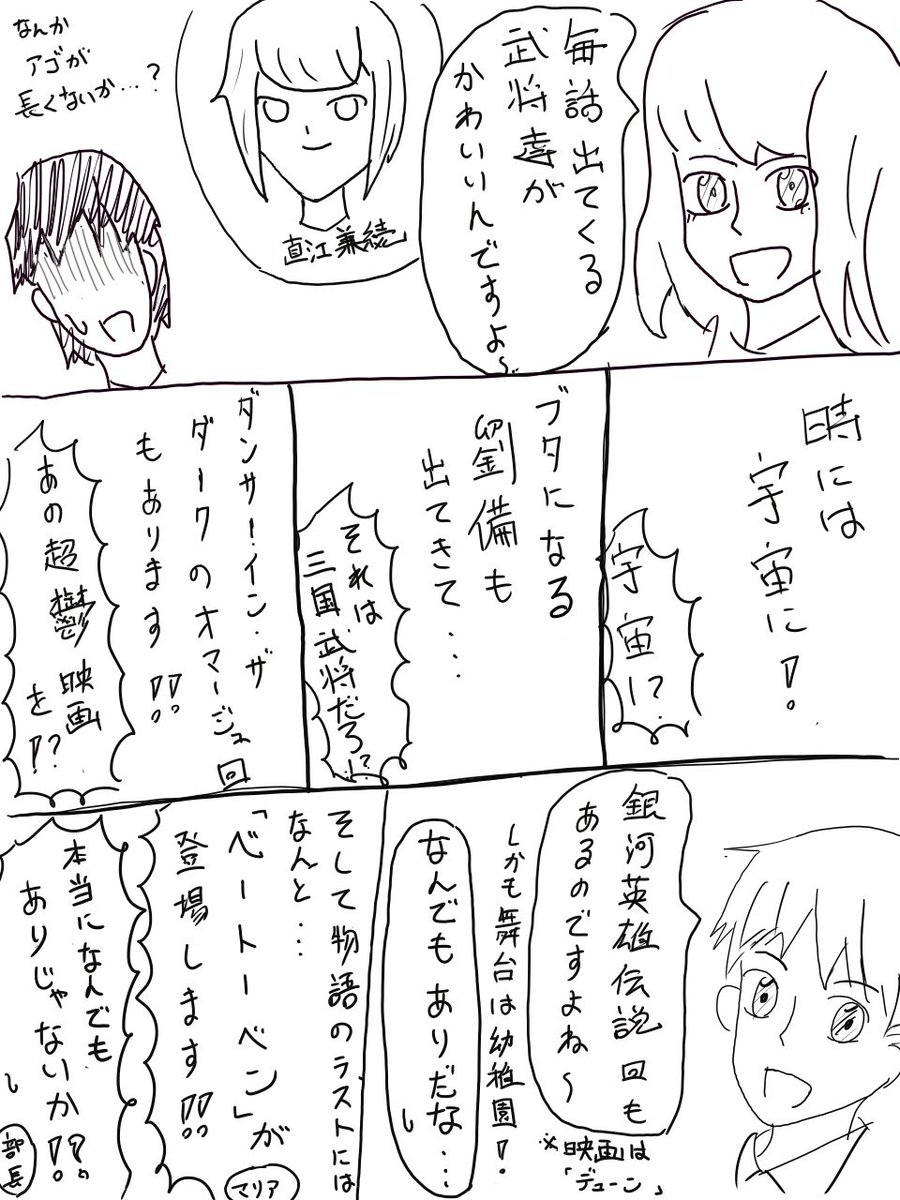 毎話出てくる
武将達が
かわいいんですよ~
直江兼続
なんか
アゴが
長くないか…?
時には
宇宙に!
宇宙!?
ブタになる
劉備も
出てきて…
それは
三国武将だろ!?
ダンサー・イン・ザ
ダークのオマージュ回
もあります!!
あの超鬱映画
を!?
銀河英雄伝説回も
あるのですよね~
しかも舞台は幼稚園!
※映画は
「デューン」
なんでもありだな…
そして物語のラストには
なんと…
「ベートーベン」が
登場します!!
マリア
本当になんでも
ありじゃないか!?!
部長